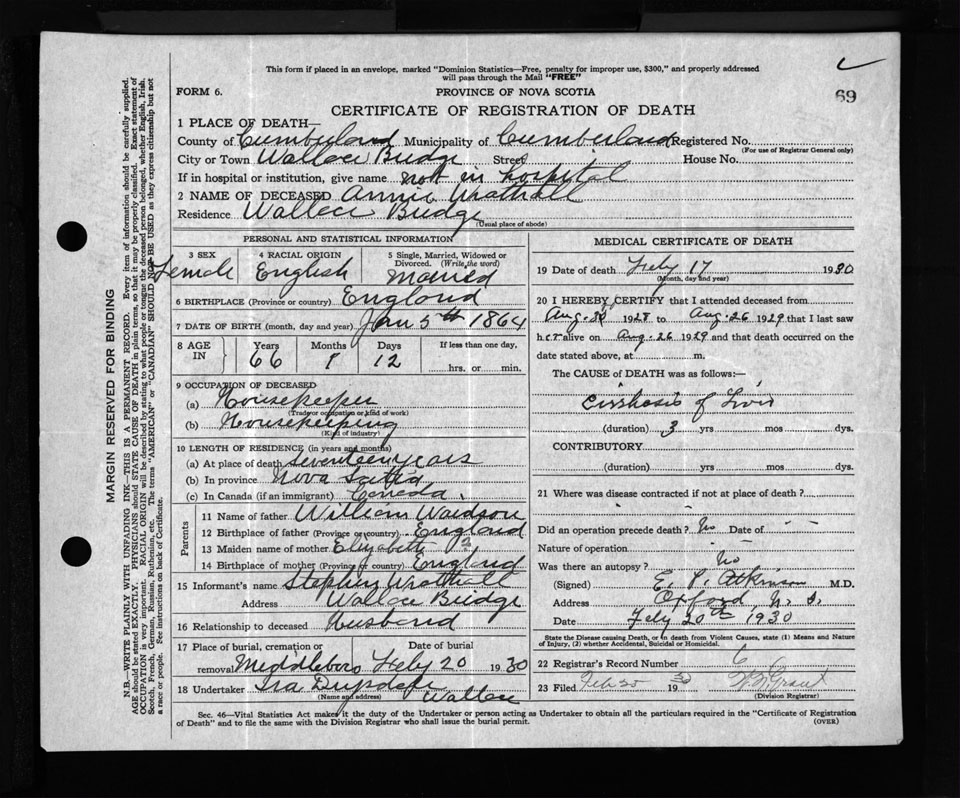 This form if placed in an envelope, marked "Dominion Statistics—Free, penalty for improper use, $300," and properly addressed
will pass through the Mail "FREE"
69
FORM 6. PROVINCE OF NOVA SCOTIA
CERTIFICATE OF REGISTRATION OF DEATH
1 PLACE OF DEATH—
County of Cumberland Municipality of Cumberland Registered No.
(For use of Registrar General only)
City or Town Wallace Bridge Street House No.
If in hospital or institution, give name not in hospital
2 NAME OF DECEASED Annie Wrathall
Residence Wallace Bridge
(Usual place of abode)
PERSONAL AND STATISTICAL INFORMATION
3 SEX 4 RACIAL ORIGIN 5 Single, Married, Widowed or
Divorced. (Write the word)
Female English Married
6 BIRTHPLACE (Province or country) England
7 DATE OF BIRTH (month, day and year) Jan 5th 1864
8 AGE IN Years Months Days If less than one day,
66 1 12 hrs. or min.
9 OCCUPATION OF DECEASED
(a) Housekeeper
(Trade or occupation or kind of work)
(b) Housekeeping
(Kind of industry)
10 LENGTH OF RESIDENCE (in years and months)
(a) At place of death seventeen years
(b) In province Nova Scotia
(c) In Canada (if an immigrant) Canada
Parents
11 Name of father William
12 Birthplace of father (Province or country) England
13 Maiden name of mother Elizabeth ?
14 Birthplace of mother (Province or country) England
15 Informant's name Stephen Wrathall
Address Wallace Bridge
16 Relationship to deceased Husband
17 Place of burial, cremation or Date of burial
removal Middleboro Feby 20 1930
18 Undertaker Ira
(Name and address) Wallace
MEDICAL CERTIFICATE OF DEATH
19 Date of death Feby 17 1930
(Month, day and year)
20 I HEREBY CERTIFY that I attended deceased from
Aug. 1928 to Aug. 26 1929 that I last saw
her alive on Aug. 26 1929 and that death occurred on the
date stated above, at m.
The CAUSE of DEATH was as follows:—
Cirrhosis of Liver
(duration) 3 yrs mos dys.
CONTRIBUTORY
(duration) yrs mos dys.
21 Where was disease contracted if not at place of death?
Did an operation precede death? No Date of - -
Nature of operation - -
Was there an autopsy? No
(Signed) E. P. Atkinson M.D.
Address Oxford, N. S.
Date Feby 20th 1930
State the Disease causing Death, or in death from Violent Causes, state (1) Means and Nature
of Injury, (2) whether Accidental, Suicidal or Homicidal.
22 Registrar's Record Number 6
23 Filed Feb 20 1930 Grant
(Division Registrar)
Sec. 46—Vital Statistics Act makes it the duty of the Undertaker or person acting as Undertaker to obtain all the particulars required in the "Certificate of Registration
of Death" and to file the same with the Division Registrar who shall issue the burial permit. (OVER)
MARGIN RESERVED FOR BINDING
N.B.—WRITE PLAINLY WITH UNFADING INK—THIS IS A PERMANENT RECORD. Every item of information should be carefully supplied.
AGE should be stated EXACTLY. PHYSICIANS should STATE CAUSE OF DEATH in plain terms, so that it may be properly classified. Exact statement of
OCCUPATION is very important. RACIAL ORIGIN will be described by stating to what people or tongue the deceased person belonged, whether English, Irish,
Scotch, French, German, Russian, Ruthenian, etc. The terms "AMERICAN" or "CANADIAN" SHOULD NOT BE USED as they express citizenship but not
a race or people. See instructions on back of Certificate.